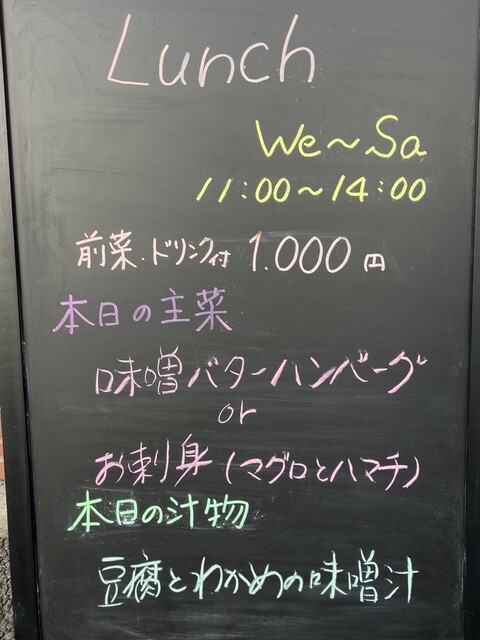 Lunch
We~Sa
11:00~14:00
前菜・ドリンク付 1.000円
本日の主菜
味噌バターハンバーグ
or
お刺身(マグロとハマチ)
本日の汁物
豆腐とわかめの味噌汁